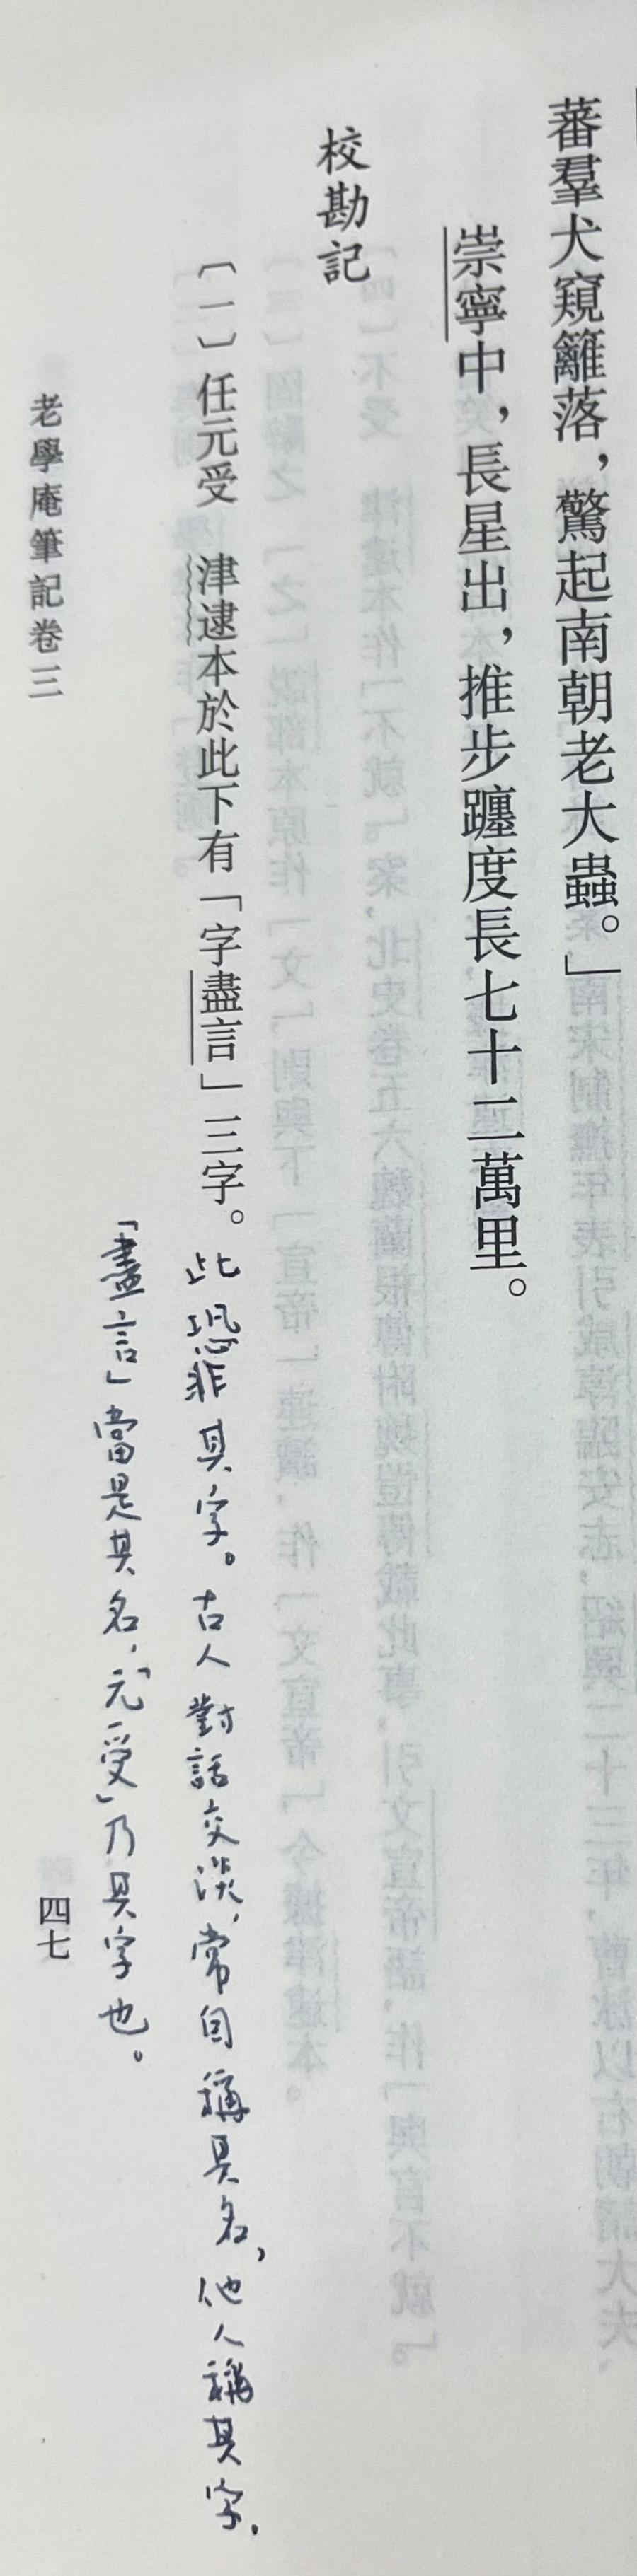 蕃羣犬窺籬落，驚起南朝老大蟲。」
崇寧中，長星出，推步躔度長七十二萬里。
校勘記
〔一〕任元受　津逮本於此下有「字盡言」三字。此恐非其字。古人對話交談，常自稱其名，他人稱其字，
「盡言」當是其名，「元受」乃其字也。
老學庵筆記卷三
四七